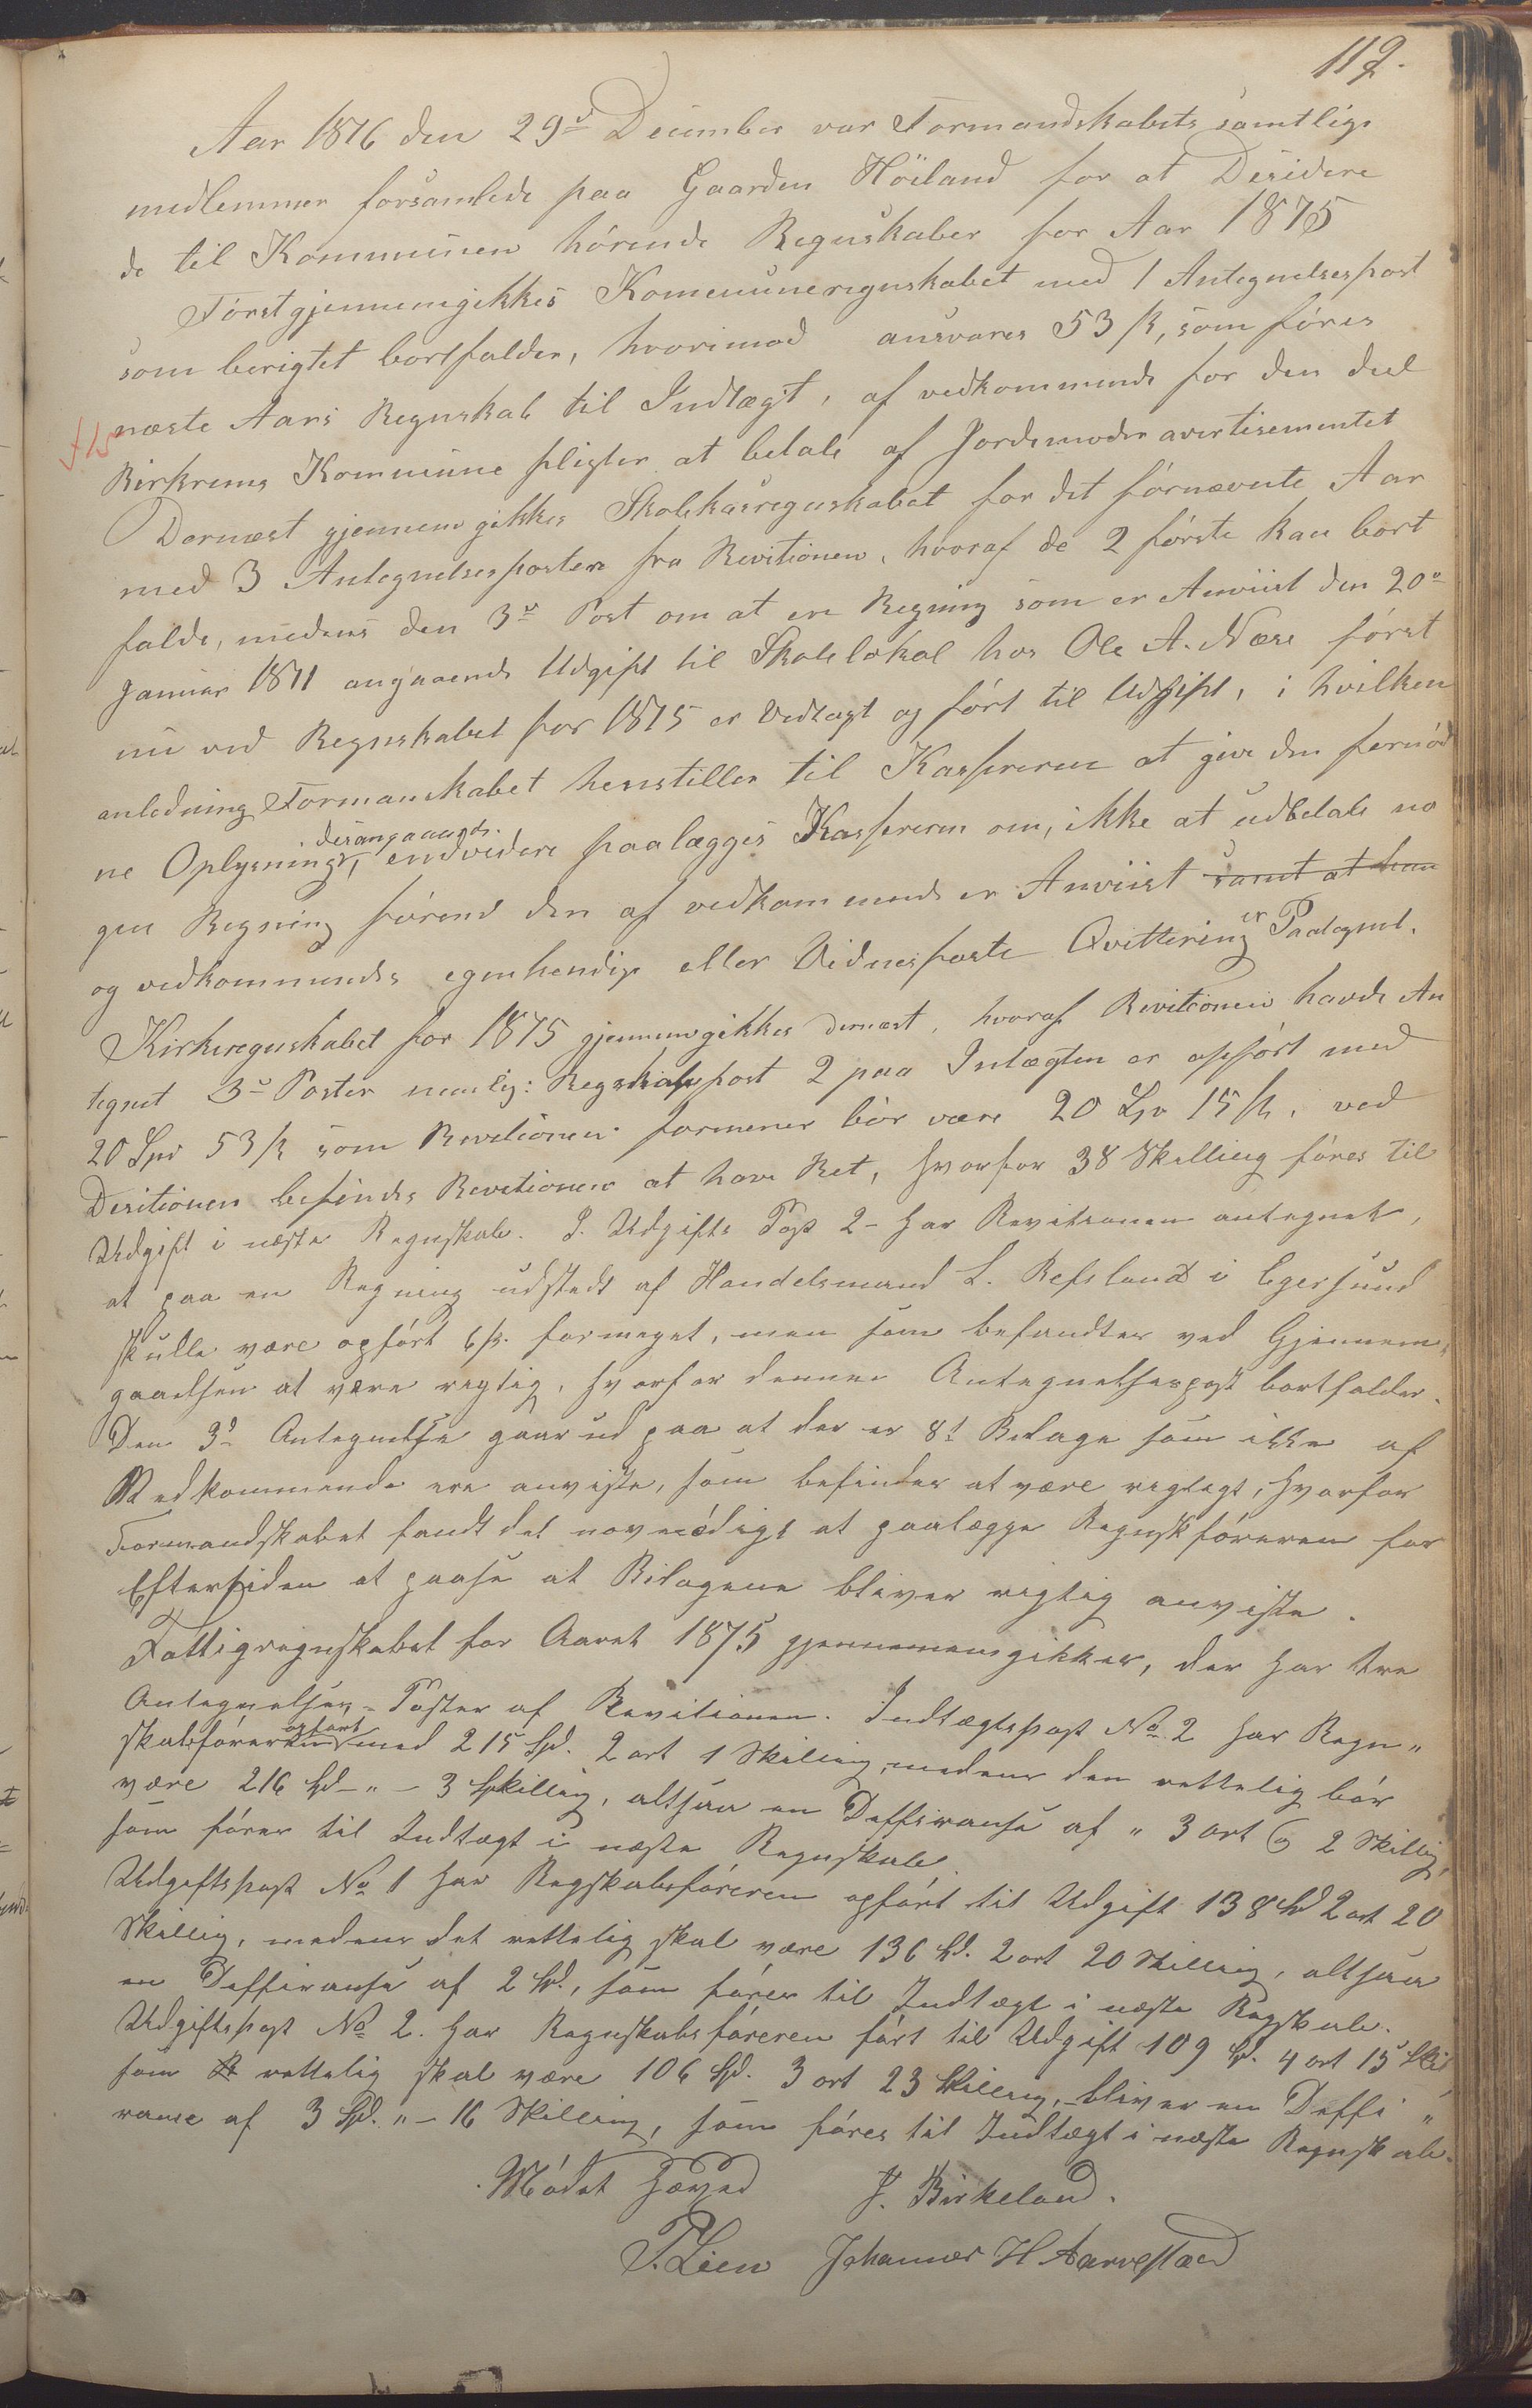 112.
Aar 1876 den 29de December var Formandskabets samtlige
medlemmer forsamlede paa Gaarden Höiland for at Desidere
de til Kommunen hörende Regnskaber for Aar 1875
Förstgjennemgikkes Kommuneregnskabet med 1 Antegnelsespost
som berigtet bortfalder, hvorimod ansvares 53 ß, som föres
næste Aars Regnskab til Indtægt, af vedkommende for den deel
Birkrems Kommune pligter at betale af Jordemoder avertisementet
Dernæst gjennemgikkes Skolekasregnskabet for det fórnævnte Aar
med 3 Antegnelsesposter fra Revitionen, hvoraf de 2 förste kan bort
falde, medens den 3de Post om at en Regning som er Anviist den 20de
Januar 1871 angaaende Udgift til Skolelokal hos Ole A. Næse först
nu ved Regnskabet for 1875 er Vedlagt og fört til Udgift, i hvilken
anledning Formanskabet henstiller til Kassereren at give den fornöd
desangaaende.
ne Oplysning, endvidere paalægges Kassereren om, ikke at udbetale no
gen Regning förend den af vedkommende er Anviist samt at han
og vedkommendes egenhendige eller Vidnesfaste Qvittering er Paategnet.
Kirkeregnskabet for 1875 gjennemgikkes dernæst, hvoraf Revitionen havde An
tegnet 3de Poster nemlig: Regnskabspost 2 paa Intægten er opfört med
20 Spd 53 ß som Revitionen formener bör være 20 Spd 15 ß, ved
Desitionen befindes Revitionen at have Ret, hvorfor 38 Skilling föres til
Udgift i næste Regnskab. I Udgifts Post 2- har Revitionen antegnet,
at paa en Regning udstedt af Handelsmand L. Refsland i Egersund
skulle være opfört 6 ß. formeget, men som befandtes ved Gjennem,
gaaelsen at være rigtig, hvorfor denne Antegnelsespost bortfalder.
Den 3de Antegnelse gaar ud paa at der er 8t Bilage som ikke af
Vedkommende ere anviste, som befindes at være rigtigt, hvorfor
Formandskabet fandt det növnödigt at paalægge Regnskföreren for
Eftertiden at paase at Bilagene bliver rigtig anviste.
Fattigregnskabet for Aaret 1875 gjennemengikkes, der har tre
Antegnelses-Poster af Revitionen. Indtægtspost No 2 har Regn"
opfört
skabsföreren med 215 Spd. 2 ort 1 Skilling, medens den rettelig bör
være 216 Spd - " - 3 Skilling, altsaa en Defferanse af " 3 ort og 2 Skillig,
som föres til Indtægt i næste Regnskab.
Udgiftspost No 1 har Regskabsföreren opfört til Udgift 138 Spd 2 ort 20
Skillig, medens det rettelig skal være 136 Spd. 2 ort 20 Skilling, altsaa
en Defferanse af 2 Spd., som föres til Indtægt i næste Regskab.
Udgiftspost No 2. har Regnskabsföreren fört til Udgift 109 Spd. 4 ort 15 Skil,
som rettelig skal være 106 Spd. 3 ort 23 Skilling, bliver en Deffe"
ranse af 3 Spd. " - 16 Skilling, som föres til Indtægt i næste Regnskab.
Mödet hævet J. Birkeland.
T. Lien Johannes H Aarrestad